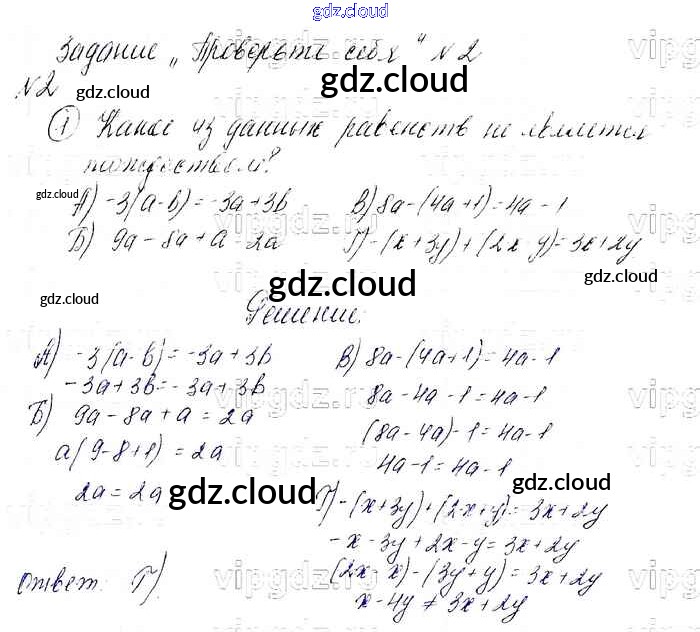 gdz.cloud
Задание „Проверьте себя" №2
№2 gdz.cloud gdz.cloud
1 Какое из данных равенств не является
тождеством?
gdz.cloud
А) -3(a-b)=-3a+3b В) 8a-(4a+1)=4a-1
Б) 9a-8a+a=2a Г) -(x+3y)+(2x-y)=3x+2y
gdz.cloud gdz.cloud
Решение:
А) -3(a-b)=-3a+3b В) 8a-(4a+1)=4a-1
-3a+3b=-3a+3b 8a-4a-1=4a-1
Б) 9a-8a+a=2a gdz.cloud (8a-4a)-1=4a-1
a(9-8+1)=2a 4a-1=4a-1
2a=2a gdz.cloud Г) -(x+3y)+(2x+y)=3x+2y
-x-3y+2x-y=3x+2y
Ответ: Г). (2x-x)-(3y+y)=3x+2y
gdz.cloud x-4y≠3x+2y